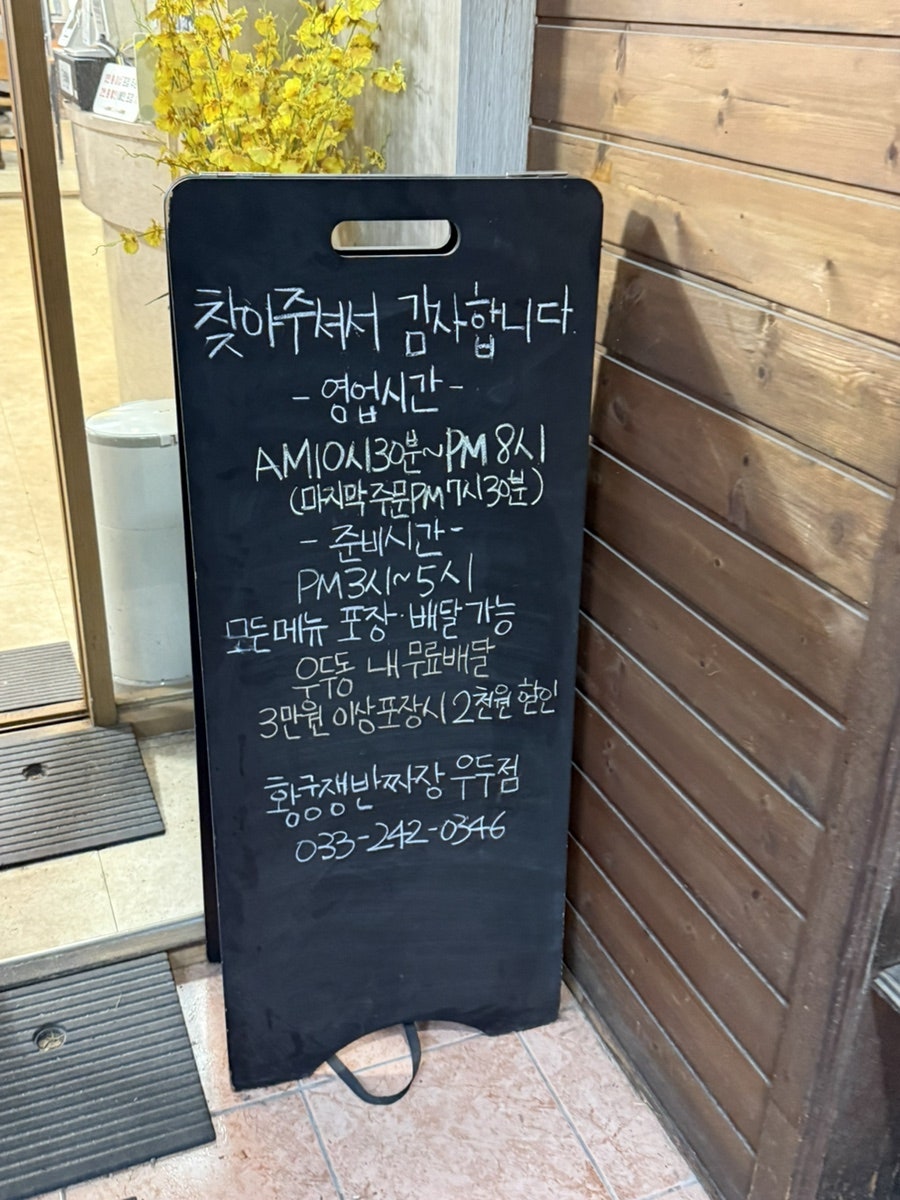 찾아주셔서 감사합니다.
- 영업시간 -
AM10시30분~PM 8시
(마지막 주문PM 7시30분)
- 준비시간 -
PM 3시~5시
모든메뉴 포장·배달 가능
우두동 내 무료배달
3만원 이상 포장시 2천원 할인
황궁쟁반짜장 우두점
033-242-0346